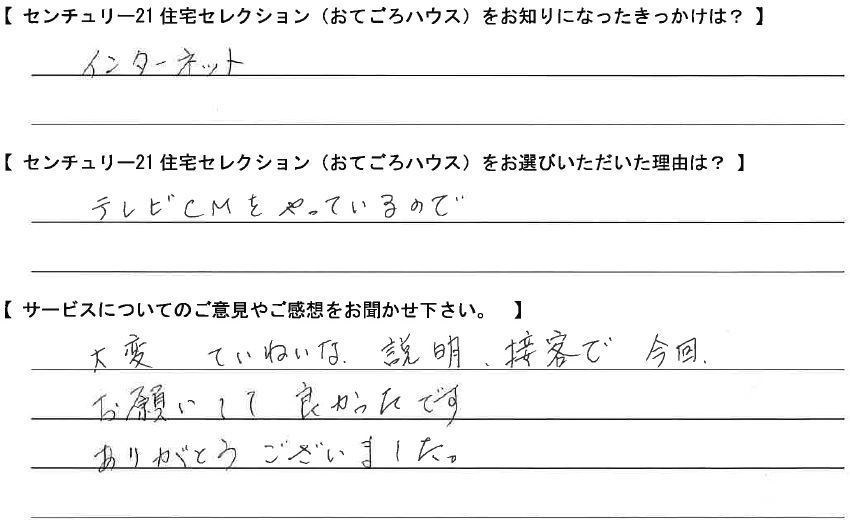 【 センチュリー21 住宅セレクション（おてごろハウス）をお知りになったきっかけは？ 】
インターネット
【 センチュリー21 住宅セレクション（おてごろハウス）をお選びいただいた理由は？ 】
テレビCMをやっているので
【 サービスについてのご意見やご感想をお聞かせ下さい。 】
大変 ていねいな、説明、接客で 今回、
お願いして 良かったです
ありがとうございました。